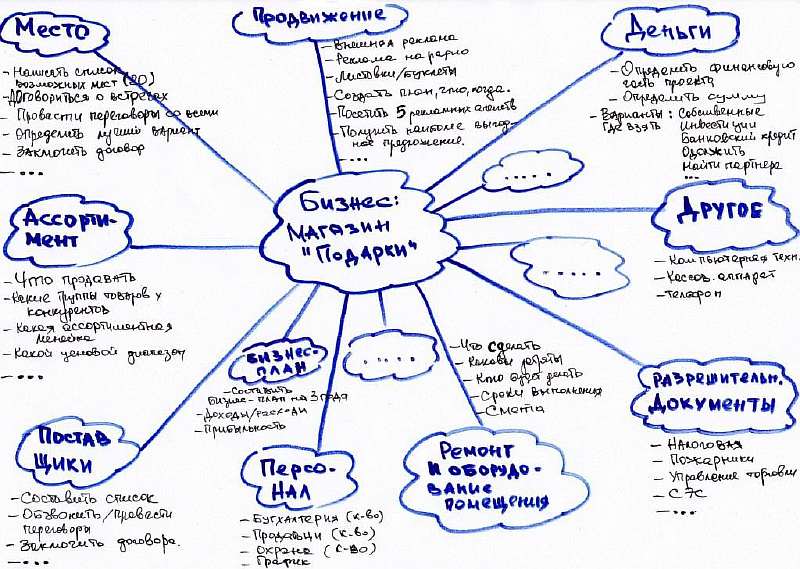 Место
- Написать список
возможных мест (20)
- Договориться о встречах
- Провести переговоры со всеми
- Определить лучший вариант
- Заключить договор
- ....
Продвижение
- Внешная реклама
- Реклама на радио
- Листовки/буклеты
- Создать план, что, когда.
- Посетить 5 рекламных агентств
- Получить наиболе выгод-
ное предложение.
- ....
Деньги
- Определить финансовую
часть проекта
- Определить сумму
- Варианты: Собственные
Где взять Инвестиции
Банковский кредит
Одолжить
Найти партнера
...
.....
Бизнес:
магазин
"Подарки"
Ассорти-
мент
- Что продавать
- Какие группы товаров у
конкурентов
- Какая ассортиментная
линейка
- Какой ценовой диапазон
- ....
Другое
- Компьютерная техн.
- Кассов. аппарат
- Телефон
.....
Бизнес-
план
- Составить
бизнес-план на 3 года
- Доходы/расходы
- Прибыльность
.....
- Что сделать
- Каковы
- Кто будет делать
- Сроки выполнения
- Смета
Разрешительн.
документы
- Налоговая
- Пожарники
- Управление торговли
- СЭС
- ....
Постав
щики
- Составить список
- Обзвонить/провести
переговоры
- Заключить договора.
- ...
Персо-
нал
- Бухгалтерия (к-во)
- Продавцы (к-во)
- Охрана (к-во)
- График
Ремонт
и оборудо-
вание
помещения